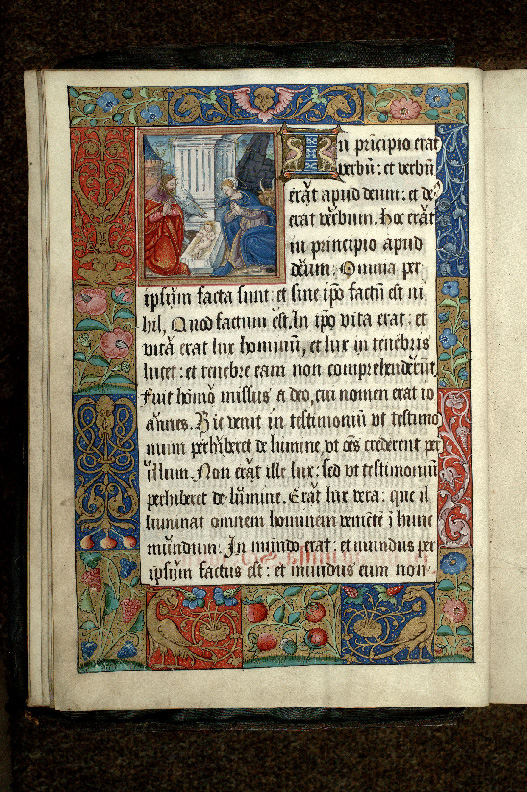 In prīcipio erat
verbū: et verbū
erat apud deum: et de⁹
erat verbum. Hoc erat
in principio apud
deum: Omnia per
ipsum facta sunt: et sine ipō factū est ni
hil. Quod factum est. In ipō vita erat: et
vita erat lux hominū, et lux in tenebris
lucet: et tenebre eam non comprehenderūt
Fuit homo missus a deo, cui nomen erat io
annes. Hic venit in testimoniū vt testimo
nium perhiberet de lumine, vt oēs crederent per
illum. Non erat ille lux: sed vt testimoniū
perhiberet de lumine. Erat lux vera: que il
luminat omnem hominem veniētē ī hunc
mundum. In mundo erat: et mundus per
ipsum factus est: et mundus eum non